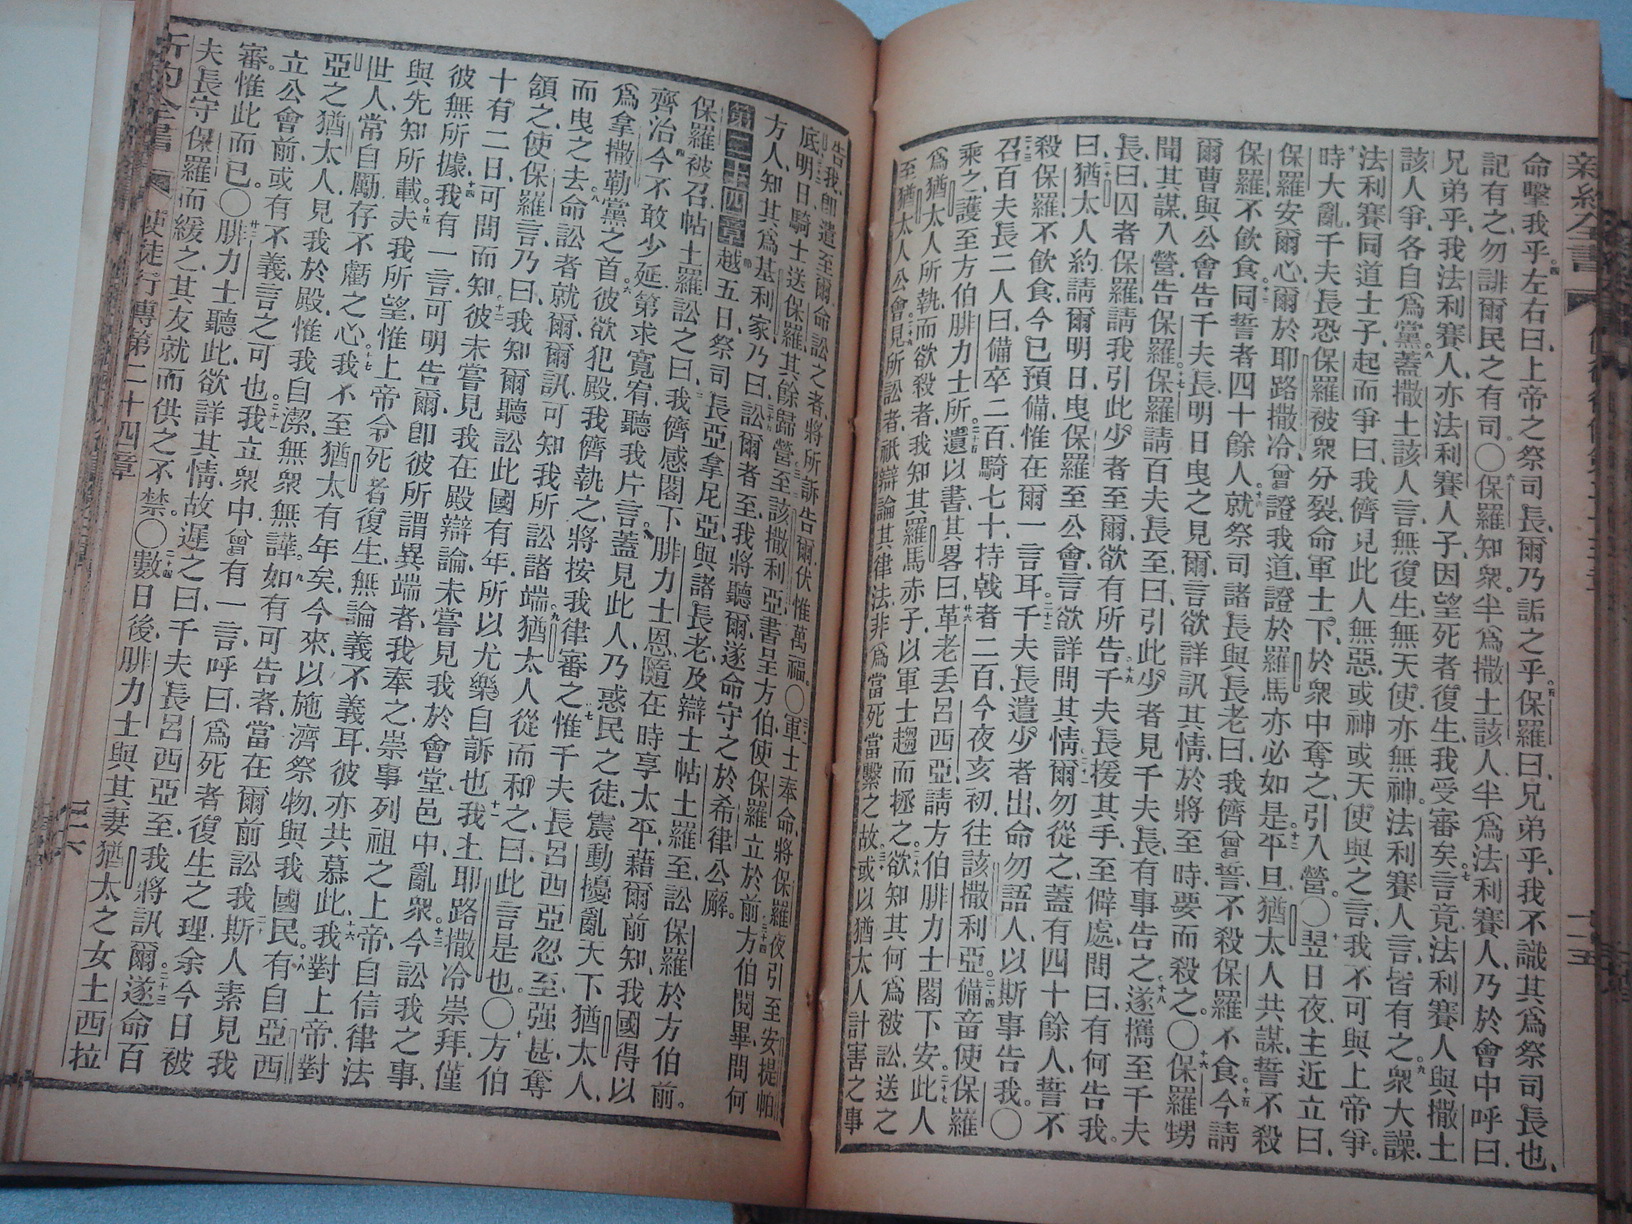 命擊我乎左右曰上帝之祭司長爾乃詬之乎保羅曰兄弟乎我不識其爲祭司長也
記有之勿誹爾民之有司○保羅知衆半爲撒土該人半爲法利賽人乃於會中呼曰
兄弟乎我法利賽人亦法利賽人子因望死者復生我受審矣言竟法利賽人與撒土
該人爭各自爲黨蓋撒土該人言無復生無天使亦無神法利賽人言皆有之衆大譟
法利賽同道士子起而爭曰我儕見此人無惡或神或天使與之言我不可與上帝爭
時大亂千夫長恐保羅被衆分裂命軍士下於衆中奪之引入營○翌日夜主近立曰
保羅安爾心爾於耶路撒冷曾證我道證於羅馬亦必如是平旦猶太人共謀誓不殺
保羅不飲食同誓者四十餘人就祭司諸長與長老曰我儕曾誓不殺保羅不食今請
爾曹與公會告千夫長明日曳之見爾言欲詳訊其情於將至時要而殺之○保羅甥
聞其謀入營告保羅保羅請百夫長至曰引此少者見千夫長有事告之遂攜至千夫
長曰囚者保羅請我引此少者至爾欲有所告千夫長援其手至僻處問曰有何告我
曰猶太人約請爾明日曳保羅至公會言欲詳問其情爾勿從之蓋有四十餘人誓不
殺保羅不飲食今已預備惟在爾一言耳千夫長遣少者出命勿語人以斯事告我○
召百夫長二人曰備卒二百騎七十持戟者二百今夜亥初往該撒利亞備畜使保羅
乘之護至方伯腓力士所遺以書其畧曰革老丟呂西亞請方伯腓力士閣下安此人
爲猶太人所執而欲殺者我知其羅馬赤子以軍士趨而拯之欲知其何爲被訟送之
至猶太人公會見所訟者祇辯論其律法非爲當死當繫之故或以猶太人計害之事
告我卽遣至爾命訟之者將所訴告爾伏惟萬福○軍士奉命將保羅夜引至安提帕
底明日騎士送保羅其餘歸營至該撒利亞書呈方伯使保羅立於前方伯閱畢問何
方人知其爲基利家乃曰訟爾者至我將聽爾遂命守之於希律公廨
第二十四章越五日祭司長亞拿尼亞與諸長老及辯士帖土羅至訟保羅於方伯前
保羅被召帖土羅訟之曰我儕感閣下腓力士恩隨在時享太平藉爾前知我國得以
齊治今不敢少延第求寬宥聽我片言蓋見此人乃惑民之徒震動擾亂天下猶太人
爲拿撒勒黨之首彼欲犯殿我儕執之將按我律審之惟千夫長呂西亞忽至强甚奪
而曳之去命訟者就爾爾訊可知我所訟諸端猶太人從而和之曰此言是也○方伯
頷之使保羅言乃曰我知爾聽訟此國有年所以尤樂自訴也我上耶路撒冷崇拜僅
十有二日可問而知彼未嘗見我在殿辯論未嘗見我於會堂邑中亂衆今訟我之事
彼無所據我有一言可明告爾卽彼所謂異端者我奉之崇事列祖之上帝自信律法
與先知所載夫我所望惟上帝令死者復生無論義不義耳彼亦共慕此我對上帝對
世人常自勵存不虧之心我不至猶太有年矣今來以施濟祭物與我國民有自亞西
亞之猶太人見我於殿惟我自潔無衆無譁如有可告者當在爾前訟我斯人素見我
立公會前或有不義言之可也我立衆中曾有一言呼曰爲死者復生之理余今日被
審惟此而已○腓力士聽此欲詳其情故遲之曰千夫長呂西亞至我將訊爾遂命百
夫長守保羅而緩之其友就而供之不禁○數日後腓力士與其妻猶太之女土西拉
新約全書 使徒行傳第二十四章